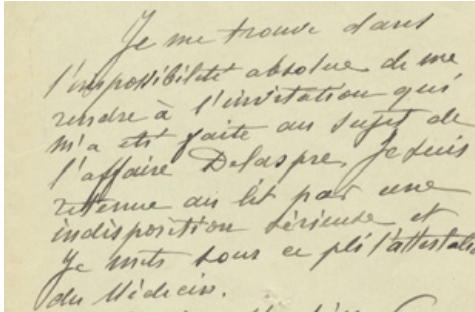 Je me trouve dans
l'impossibilité absolue de me
rendre à l'invitation qui
m'a été faite au sujet de
l'affaire Delaspre. Je suis
retenue au lit par une
indisposition sérieuse et
je mets sous ce pli l'attestatio
du Médecin.